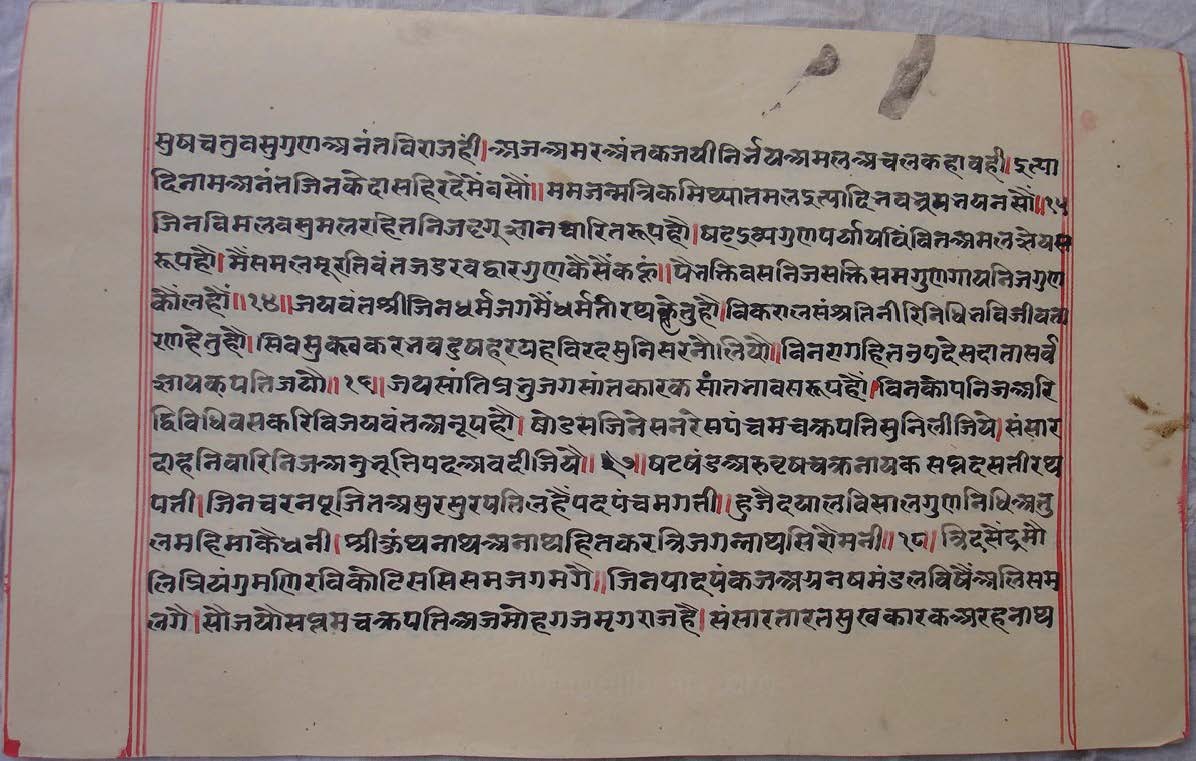 सुषचतुवसुगुणअनंतविराजहीं। अजअमरअंतकजयीनिर्नयअमलअचलकहावही। इत्या
दिनामअनंतजिनकेदासहिरदेमेंवसौं॥ ममजन्मत्रिकमिथ्यातमलइत्यादिनवत्रयनयनसौं॥१५
जिनविमलवसुमलरहितनिजदृगज्ञानचारितरूपहौ। षटद्रव्यगुणपर्यायविंवितअमलज्ञेयस
रूपहौ। मैंसमलमूरतिवंतजडरवद्वारगुणकैसैंकहूं॥ पैभक्तिवसनिजसक्तिसमगुणगायनिजगुण
कौंलहौं॥१४॥ जयवंतश्रीजिनधर्मजगमैंधर्मतीरथकेतुहौ। विकरालसंश्रतिनीरिनिधितविजीवता
रणहेतुहौ। सिवसुक्वकरनवदुषहरयहविरदसुनिसरनौलियौ॥ विनरागहितउपदेसदातासर्व
ज्ञायकपतिजयौ॥१६॥ जयसांतिप्रभुजगसांतकारकसांतभावसरूपहौं। विनकोपनिजअरि
द्विविधिवसकरिविजयवंतअनूपहौ। षोडसजिनेसनरेसपंचमचक्रपतिसुनिलीजिये। संसार
दाहनिवारिनिजअनुभूतिपदअवदीजियै॥१७॥ षटषंडअरुवृषचक्रनायकसप्तदसतीरथ
पती। जिनचरनपूजितअसुरसुरपतिलहैंपदपंचमगती॥ हुजैदयालविसालगुणनिधिअतु
लमहिमाकैधनी। श्रीकुंथनाथअनाथहितकरत्रिजगन्नाथसिरोमनी॥१८॥ त्रिदसेंद्रमौ
लिप्रियंगुमणिरविकोटिससिसमजगमगै॥ जिनपादपंकजअयनषमंडलविषैंअलिसम
लगै। सौजयौसप्तमचक्रपतिअजमोहगजमृगराजहै। संसारतारनसुखकारकअरहनाथ